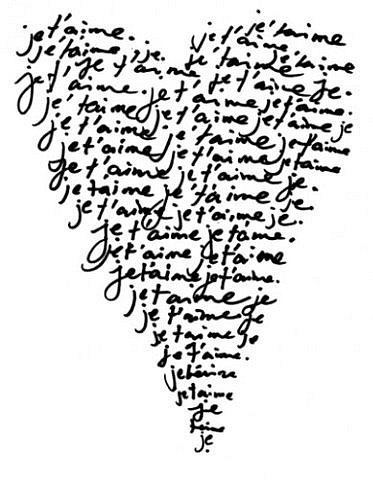 je t'aime. je t'aime
je t'aime, je. je t'aime.
je t'aime je t'aime je t'aime
je t'aime je t'aime je t'aime je.
je t'aime je t'aime je t'aime.
je t'aime je t'aime je t'aime je
je t'aime je t'aime je t'aime
je t'aime je t'aime je.
je t'aime je t'aime je.
je t'aime je t'aime je.
je t'aime je t'aime.
je t'aime je t'aime
je t'aime je t'aime.
je t'aime je
je t'aime je
je t'aime je
je t'aime.
je
je t'aime
je
t'aime
je